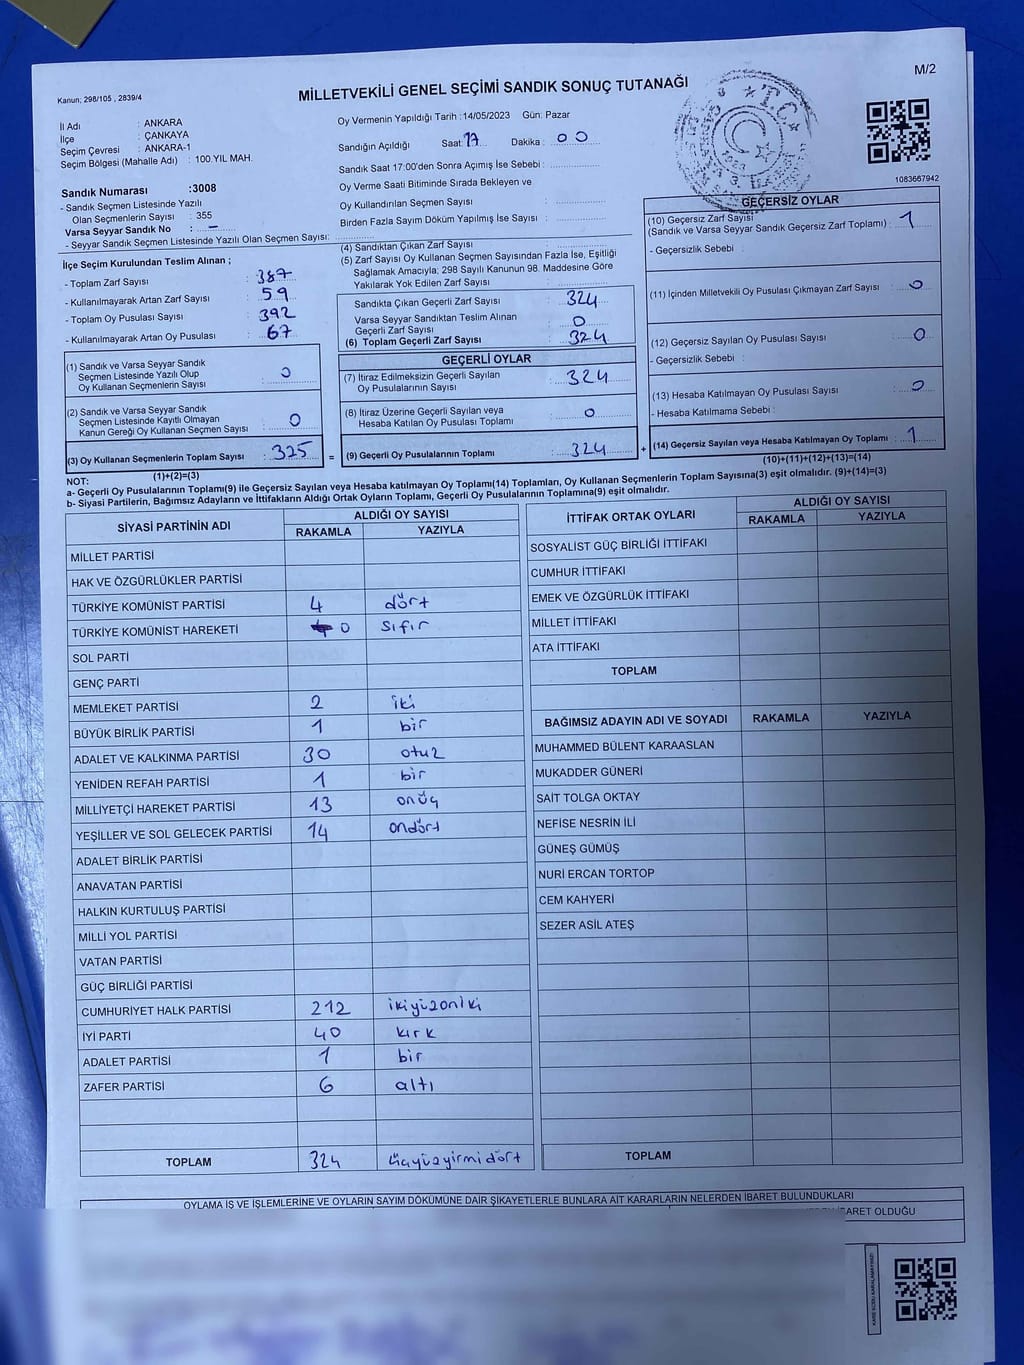 M/2
Kanun; 298/105 , 2839/4
MİLLETVEKİLİ GENEL SEÇİMİ SANDIK SONUÇ TUTANAĞI
İl Adı : ANKARA
İlçe : ÇANKAYA
Seçim Çevresi : ANKARA-1
Seçim Bölgesi (Mahalle Adı) : 100.YIL MAH.
Sandık Numarası :3008
- Sandık Seçmen Listesinde Yazılı
Olan Seçmenlerin Sayısı : 355
Varsa Seyyar Sandık No : -
- Seyyar Sandık Seçmen Listesinde Yazılı Olan Seçmen Sayısı:
Oy Vermenin Yapıldığı Tarih :14/05/2023 Gün: Pazar
Sandığın Açıldığı Saat: 17 Dakika : 00
Sandık Saat 17:00'den Sonra Açımış İse Sebebi :
Oy Verme Saati Bitiminde Sırada Bekleyen ve
Oy Kullandırılan Seçmen Sayısı :
Birden Fazla Sayım Döküm Yapılmış İse Sayısı :
T.C.
1083667942
İlçe Seçim Kurulundan Teslim Alınan ;
- Toplam Zarf Sayısı : 387
- Kullanılmayarak Artan Zarf Sayısı : 59
- Toplam Oy Pusulası Sayısı : 392
- Kullanılmayarak Artan Oy Pusulası : 67
(1) Sandık ve Varsa Seyyar Sandık
Seçmen Listesinde Yazılı Olup
Oy Kullanan Seçmenlerin Sayısı : 0
(2) Sandık ve Varsa Seyyar Sandık
Seçmen Listesinde Kayıtlı Olmayan
Kanun Gereği Oy Kullanan Seçmen Sayısı : 0
(3) Oy Kullanan Seçmenlerin Toplam Sayısı : 325
(1)+(2)=(3)
(4) Sandıktan Çıkan Zarf Sayısı :
(5) Zarf Sayısı Oy Kullanan Seçmen Sayısından Fazla İse, Eşitliği
Sağlamak Amacıyla; 298 Sayılı Kanunun 98. Maddesine Göre
Yakılarak Yok Edilen Zarf Sayısı :
Sandıkta Çıkan Geçerli Zarf Sayısı : 324
Varsa Seyyar Sandıktan Teslim Alınan
Geçerli Zarf Sayısı : 0
(6) Toplam Geçerli Zarf Sayısı : 324
GEÇERLİ OYLAR
(7) İtiraz Edilmeksizin Geçerli Sayılan
Oy Pusulalarının Sayısı : 324
(8) İtiraz Üzerine Geçerli Sayılan veya
Hesaba Katılan Oy Pusulası Toplamı : 0
= (9) Geçerli Oy Pusulalarının Toplamı : 324 +
GEÇERSİZ OYLAR
(10) Geçersiz Zarf Sayısı
(Sandık ve Varsa Seyyar Sandık Geçersiz Zarf Toplamı) : 1
- Geçersizlik Sebebi :
(11) İçinden Milletvekili Oy Pusulası Çıkmayan Zarf Sayısı : 0
(12) Geçersiz Sayılan Oy Pusulası Sayısı : 0
- Geçersizlik Sebebi :
(13) Hesaba Katılmayan Oy Pusulası Sayısı : 0
- Hesaba Katılmama Sebebi :
(14) Geçersiz Sayılan veya Hesaba Katılmayan Oy Toplamı : 1
(10)+(11)+(12)+(13)=(14)
NOT:
a- Geçerli Oy Pusulalarının Toplamı(9) ile Geçersiz Sayılan veya Hesaba katılmayan Oy Toplamı(14) Toplamları, Oy Kullanan Seçmenlerin Toplam Sayısına(3) eşit olmalıdır. (9)+(14)=(3)
b- Siyasi Partilerin, Bağımsız Adayların ve İttifakların Aldığı Ortak Oyların Toplamı, Geçerli Oy Pusulalarının Toplamına(9) eşit olmalıdır.
SİYASİ PARTİNİN ADI ALDIĞI OY SAYISI
RAKAMLA YAZIYLA
MİLLET PARTİSİ
HAK VE ÖZGÜRLÜKLER PARTİSİ
TÜRKİYE KOMÜNİST PARTİSİ 4 dört
TÜRKİYE KOMÜNİST HAREKETİ 0 sıfır
SOL PARTİ
GENÇ PARTİ
MEMLEKET PARTİSİ 2 iki
BÜYÜK BİRLİK PARTİSİ 1 bir
ADALET VE KALKINMA PARTİSİ 30 otuz
YENİDEN REFAH PARTİSİ 1 bir
MİLLİYETÇİ HAREKET PARTİSİ 13 onüç
YEŞİLLER VE SOL GELECEK PARTİSİ 14 ondört
ADALET BİRLİK PARTİSİ
ANAVATAN PARTİSİ
HALKIN KURTULUŞ PARTİSİ
MİLLİ YOL PARTİSİ
VATAN PARTİSİ
GÜÇ BİRLİĞİ PARTİSİ
CUMHURİYET HALK PARTİSİ 212 ikiyüzoniki
İYİ PARTİ 40 kırk
ADALET PARTİSİ 1 bir
ZAFER PARTİSİ 6 altı
TOPLAM 324 üçyüzyirmidört
İTTİFAK ORTAK OYLARI ALDIĞI OY SAYISI
RAKAMLA YAZIYLA
SOSYALİST GÜÇ BİRLİĞİ İTTİFAKI
CUMHUR İTTİFAKI
EMEK VE ÖZGÜRLÜK İTTİFAKI
MİLLET İTTİFAKI
ATA İTTİFAKI
TOPLAM
BAĞIMSIZ ADAYIN ADI VE SOYADI RAKAMLA YAZIYLA
MUHAMMED BÜLENT KARAASLAN
MUKADDER GÜNERİ
SAİT TOLGA OKTAY
NEFİSE NESRİN İLİ
GÜNEŞ GÜMÜŞ
NURİ ERCAN TORTOP
CEM KAHYERİ
SEZER ASİL ATEŞ
TOPLAM
OYLAMA İŞ VE İŞLEMLERİNE VE OYLARIN SAYIM DÖKÜMÜNE DAİR ŞİKAYETLERLE BUNLARA AİT KARARLARIN NELERDEN İBARET BULUNDUKLARI
İBARET OLDUĞU